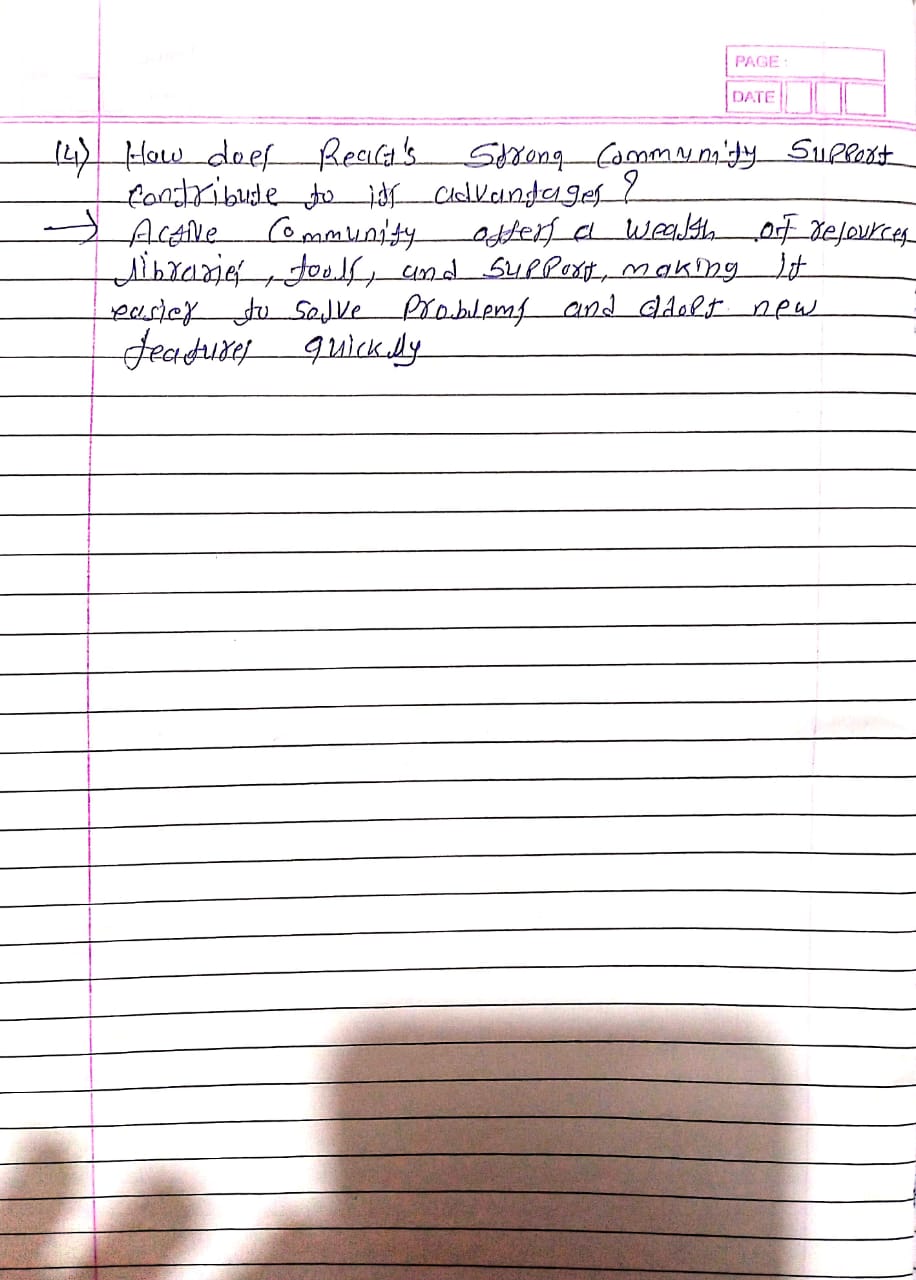 PAGE:
DATE
(4) How does React's Strong Community Support
Contribute to its advantages ?
→ Active Community offers a wealth of resources
libraries, tools, and support, making it
easier to solve problems and adopt new
features quickly